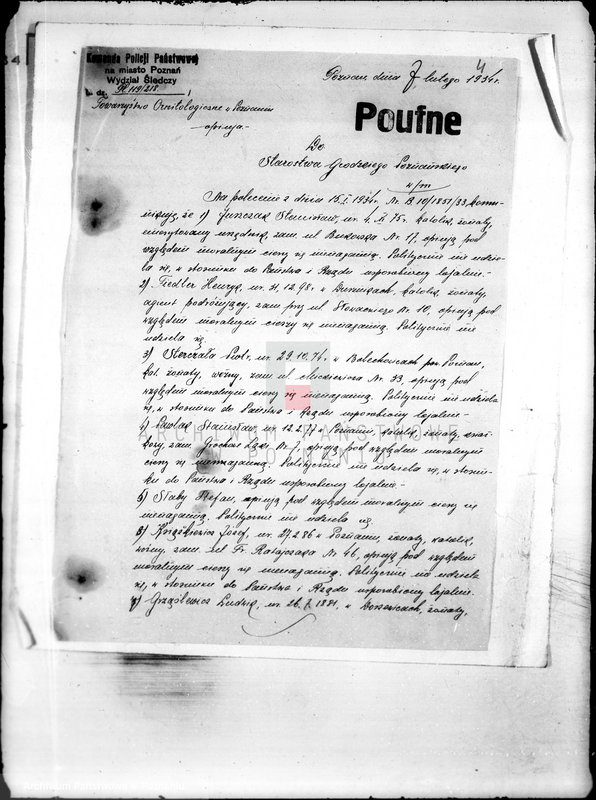 Komenda Policji Państwowej
na miasto Poznań
Wydział Śledczy
L. dz.
Towarzystwo Ornitologiczne w Poznaniu
opinja
Poznań, dnia 7 lutego 1934 r.
Poufne
Do
Starostwa Grodzkiego Poznańskiego
w/m
Na polecenie z dnia 15.I. 1934 r. Nr. B 10/1851/33, komu-
nikuję, że 1) Jurczak Stanisław, ur. 4. 75. katolik, żonaty,
emerytowany urzędnik, zam. ul. Bukowska Nr. 17, opinją pod
względem moralnym cieszy się nienaganną. Politycznie nie udzie-
la się, w stosunku do Państwa i Rządu usposobiony lojalnie.-
2) Fiedler Henryk, ur. 31. 12. 98. w katolik, żonaty,
agent podróżujący, zam. przy ul. Słowackiego Nr. 10, opinją pod
względem moralnym cieszy się nienaganną. Politycznie nie
udziela się.
3) Piotr, ur. 29.10.76 w Bolechowicach pow. Poznań,
kat. żonaty, woźny, zam. ul. Mickiewicza Nr. 33, opinją pod
względem moralnym cieszy się nienaganną. Politycznie nie udziela
się, w stosunku do Państwa i Rządu usposobiony lojalnie.-
4) Pawlak Stanisław, ur. 12.2.77 w Poznaniu, katolik, żonaty,
zam. Grochowe Łąki Nr. 7, opinją pod względem moralnym
cieszy się nienaganną. Politycznie nie udziela się, w stosun-
ku do Państwa i Rządu usposobiony lojalnie.-
5) Słaby Stefan, opinją pod względem moralnym cieszy się
nienaganną. Politycznie nie udziela się.
6) Książkiewicz Józef, ur. 27.2.86 w Poznaniu, żonaty, katolik,
woźny, zam. ul. Fr. Ratajczaka Nr. 46, opinją pod względem
moralnym cieszy się nienaganną. Politycznie nie udziela
się, w stosunku do Państwa i Rządu usposobiony lojalnie.
7) Grząślewicz Ludwik, ur. 26. 7. 1881, w żonaty,
ARCHIWUM PAŃSTWOWE
W POZNANIU
Archiwum Państwowe w Poznaniu